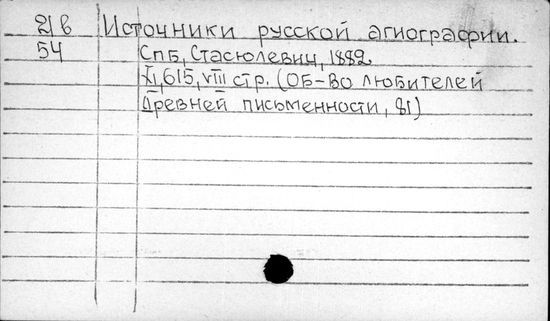 21в Источники русской агиографии.
54 СПб, Стасюлевич, 1882.
XI, 615, VIII стр. (Об-во любителей
Древней письменности, 81)